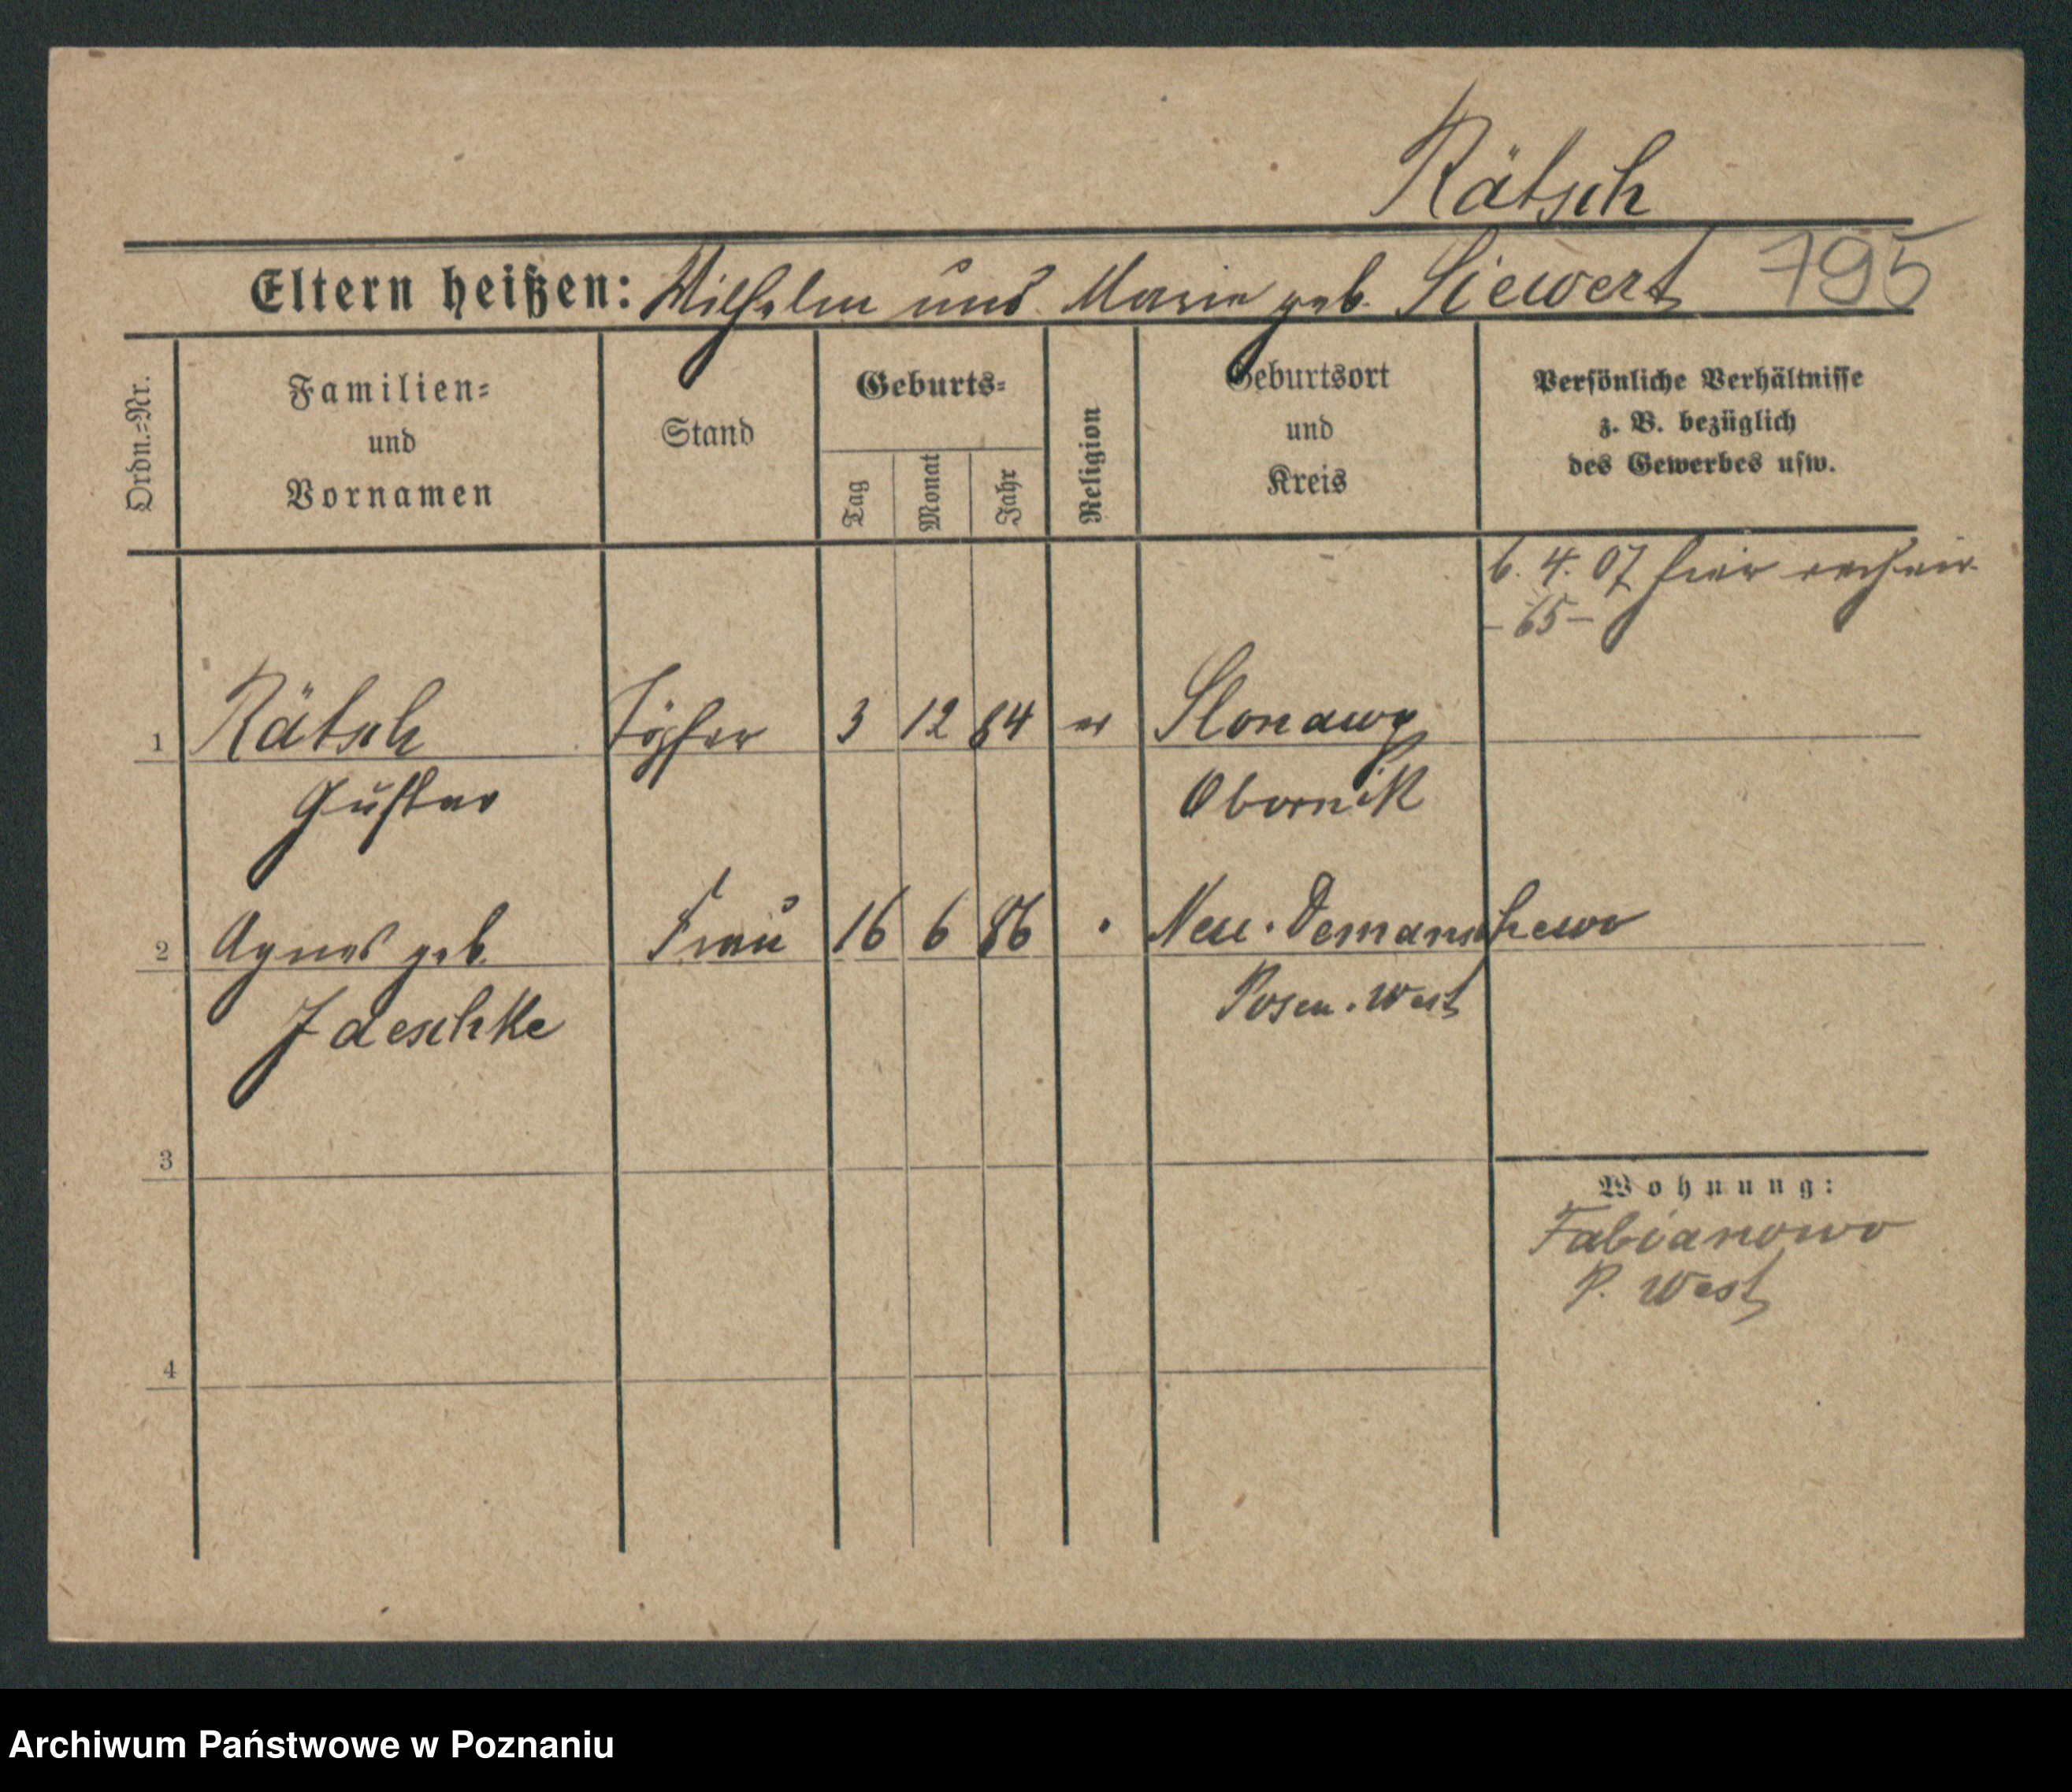 Rätsch
Eltern heißen: Wilhelm und Marie geb. Siewert 795
Ordn.=Nr.
Familien=
und
Vornamen
Stand
Geburts=
Tag
Monat
Jahr
Religion
Geburtsort
und
Kreis
Persönliche Verhältnisse
z. B. bezüglich
des Gewerbes usw.
6. 4. 07 hier
- 65 -
1 Rätsch Töpfer 3 12 84 ev Slonawy
Gustav Obornik
2 Agnes geb. Frau 16 6 86 Neu-Demanschewo
Jaeschke Posen-West
3
Wohnung:
Fabianowo
P. West
4
Archiwum Państwowe w Poznaniu